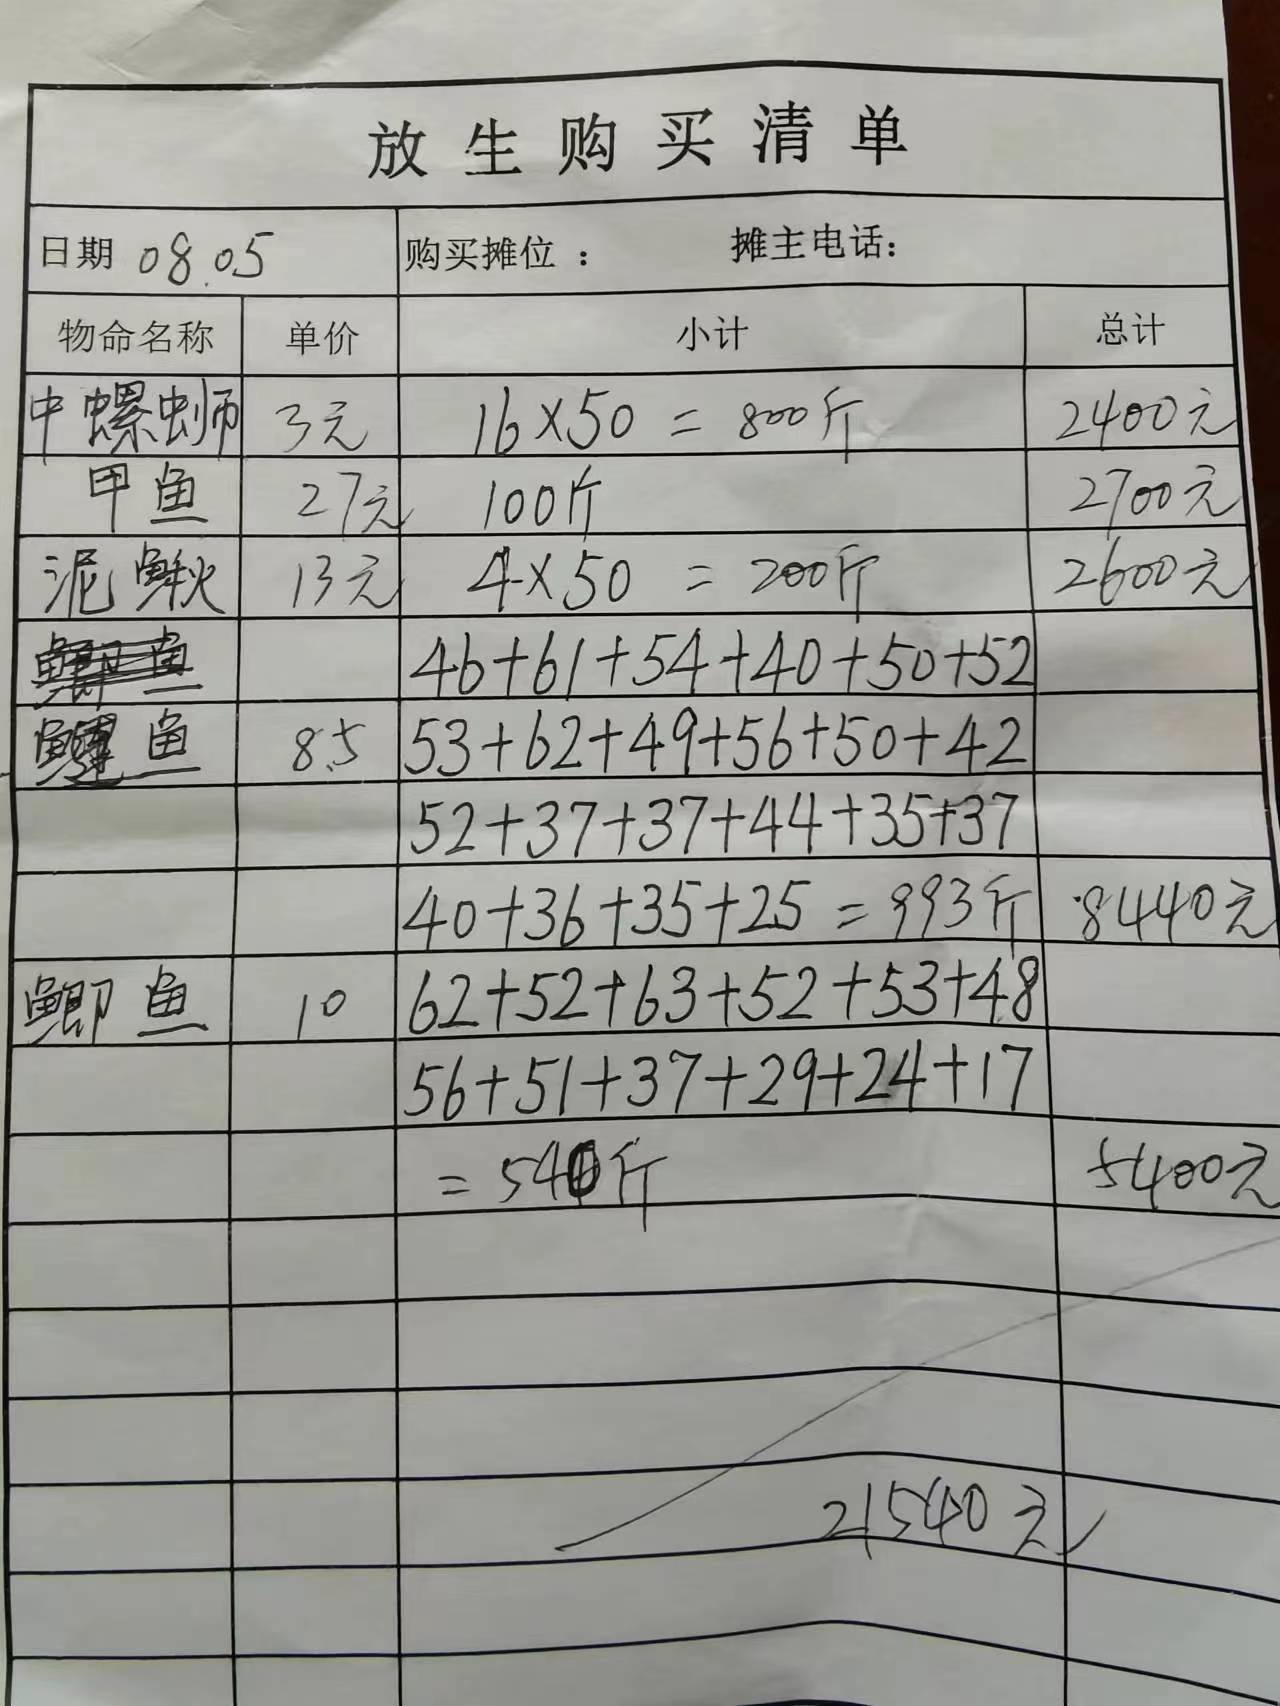 放生购买清单
日期 08.05 购买摊位： 摊主电话：
物命名称 单价 小计 总计
中螺蛳 3元 16×50=800斤 2400元
甲鱼 27元 100斤 2700元
泥鳅 13元 4×50=200斤 2600元
46+61+54+40+50+52
鱼 8.5 53+62+49+56+50+42
52+37+37+44+35+37
40+36+35+25=993斤 8440元
鲫鱼 10 62+52+63+52+53+48
56+51+37+29+24+17
=540斤 5400元
21540元